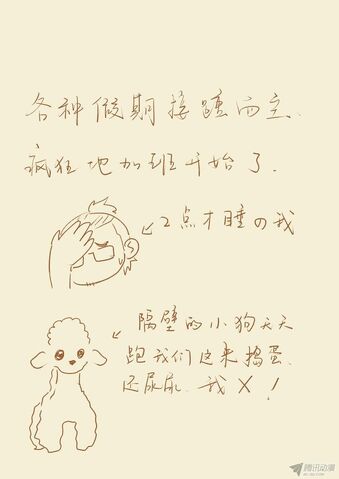 各种假期接踵而至.
疯狂地加班开始了.
2点才睡の我
隔壁的小狗天天
跑我们这来捣蛋.
还尿尿.我X!
腾讯动漫